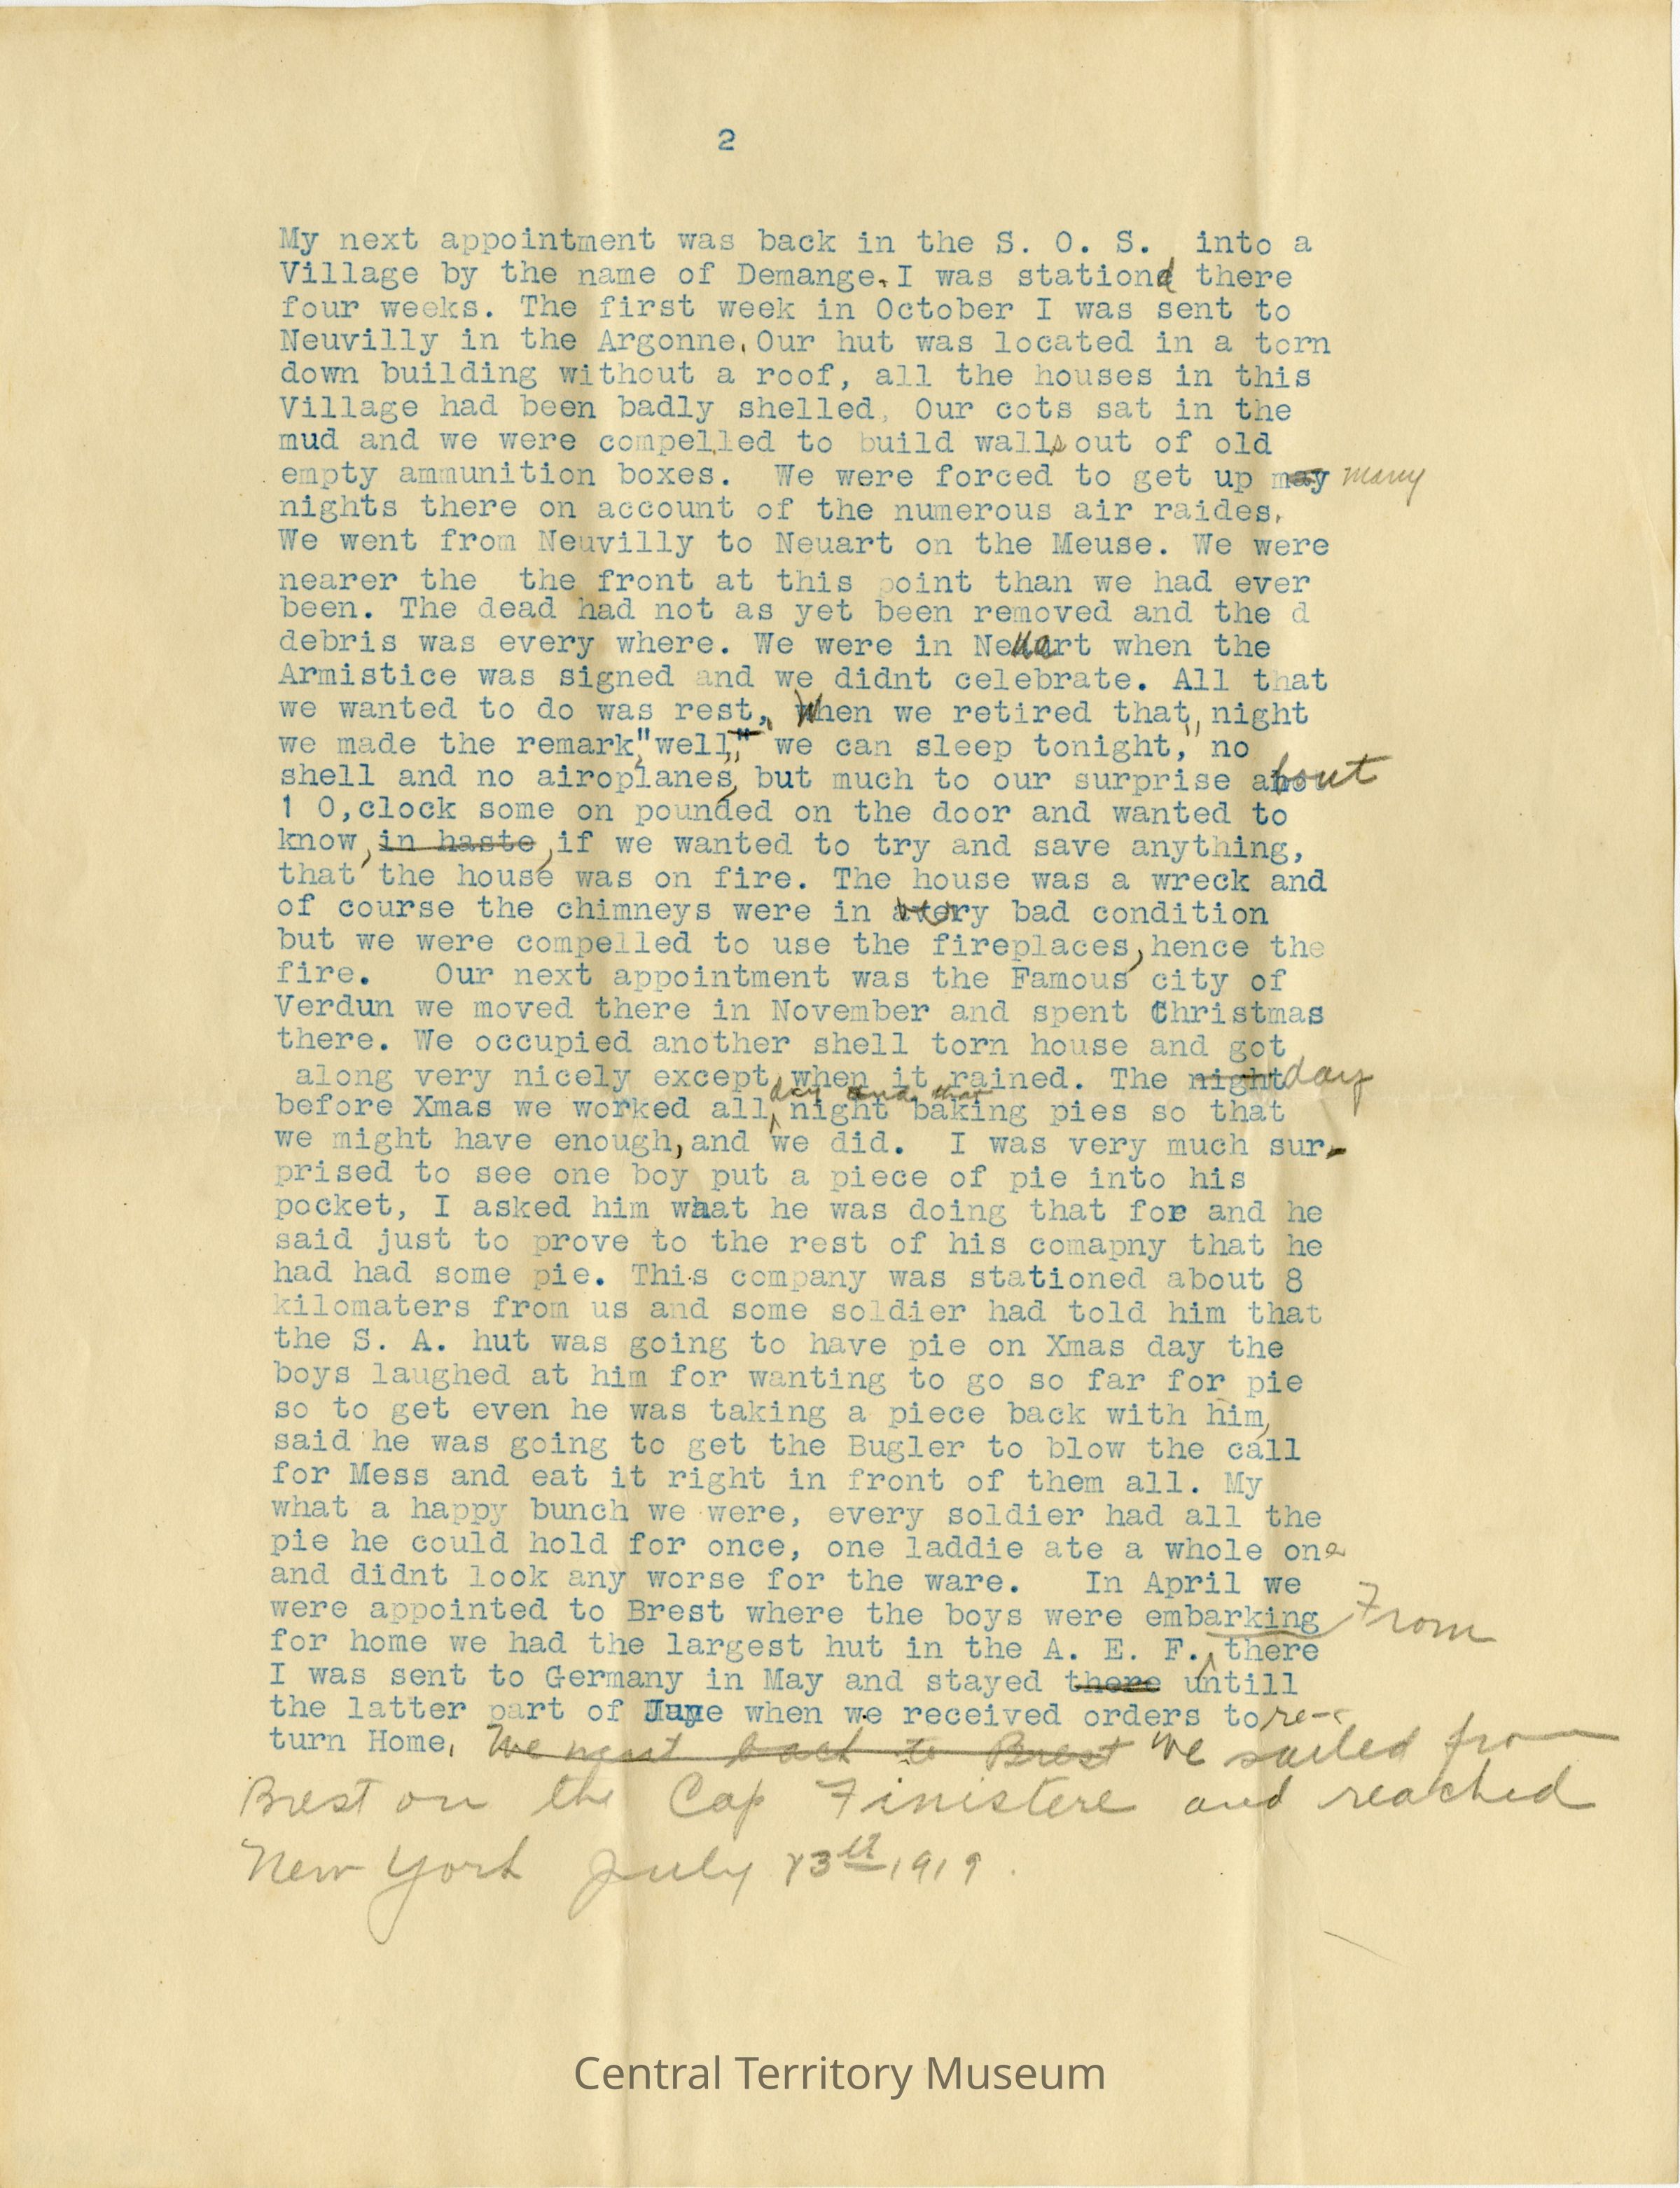 2
My next appointment was back in the S. O. S. into a
Village by the name of Demange. I was stationd there
four weeks. The first week in October I was sent to
Neuvilly in the Argonne. Our hut was located in a torn
down building without a roof, all the houses in this
Village had been badly shelled, Our cots sat in the
mud and we were compelled to build walls out of old
empty ammunition boxes. We were forced to get up may many
nights there on account of the numerous air raides.
We went from Neuvilly to Neuart on the Meuse. We were
nearer the the front at this point than we had ever
been. The dead had not as yet been removed and the d
debris was every where. We were in Neuart when the
Armistice was signed and we didnt celebrate. All that
we wanted to do was rest, When we retired that night
we made the remark, "well," we can sleep tonight," no
shell and no airoplanes, but much to our surprise about
1 0,clock some on pounded on the door and wanted to
know, in haste, if we wanted to try and save anything,
that the house was on fire. The house was a wreck and
of course the chimneys were in very bad condition
but we were compelled to use the fireplaces, hence the
fire. Our next appointment was the Famous city of
Verdun we moved there in November and spent Christmas
there. We occupied another shell torn house and got
along very nicely except, when it rained. The night day
day and that
before Xmas we worked all, night baking pies so that
we might have enough, and we did. I was very much sur-
prised to see one boy put a piece of pie into his
pocket, I asked him what he was doing that for and he
said just to prove to the rest of his comapny that he
had had some pie. This company was stationed about 8
kilomaters from us and some soldier had told him that
the S. A. hut was going to have pie on Xmas day the
boys laughed at him for wanting to go so far for pie
so to get even he was taking a piece back with him,
said he was going to get the Bugler to blow the call
for Mess and eat it right in front of them all. My
what a happy bunch we were, every soldier had all the
pie he could hold for once, one laddie ate a whole one
and didnt look any worse for the ware. In April we
were appointed to Brest where the boys were embarking From
for home we had the largest hut in the A. E. F. there
I was sent to Germany in May and stayed there untill
the latter part of June when we received orders to re-
turn Home. We went back to Brest We sailed from
Brest on the Cap Finistere and reached
New York July 13th 1919.
Central Territory Museum